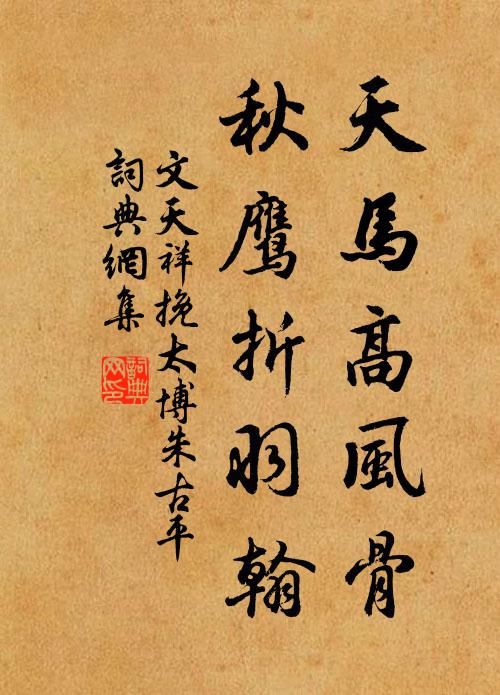 天馬高風骨
秋鷹折羽翰
文天祥挽太博朱古平
詞典網集
詞典
网印